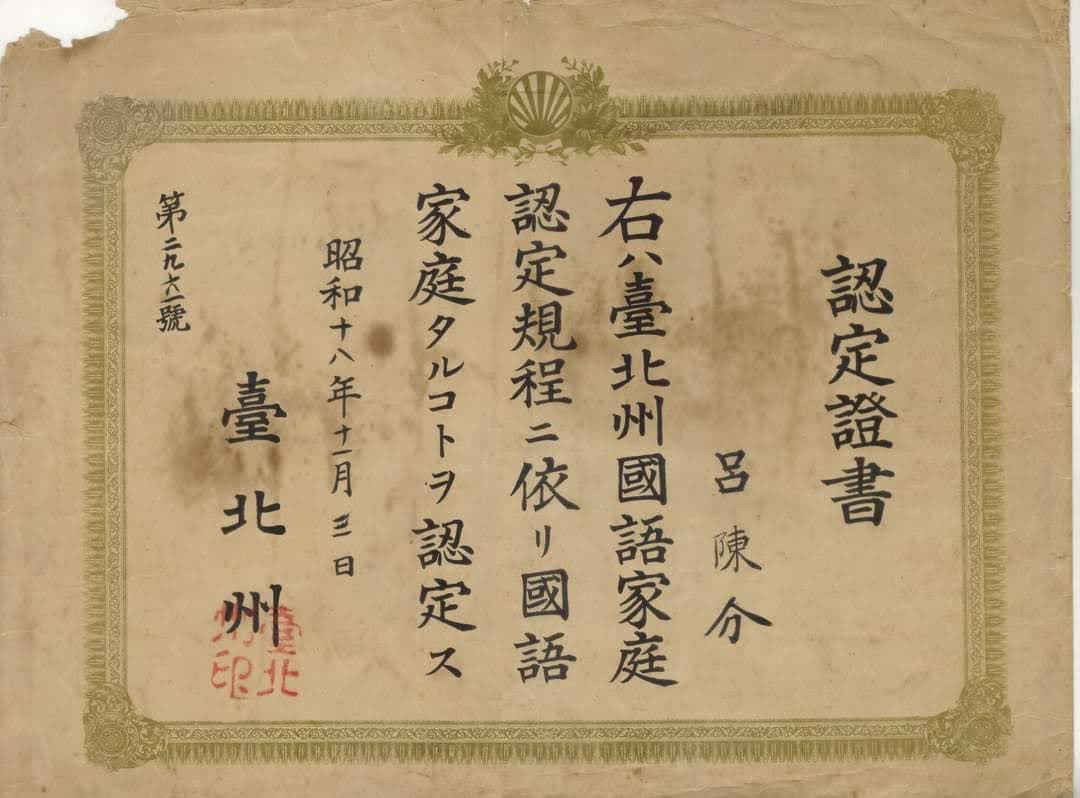 認定證書
呂陳分
右ハ臺北州國語家庭
認定規程ニ依リ國語
家庭タルコトヲ認定ス
昭和十八年十一月三日
臺北州
臺北州印
第二九六一號